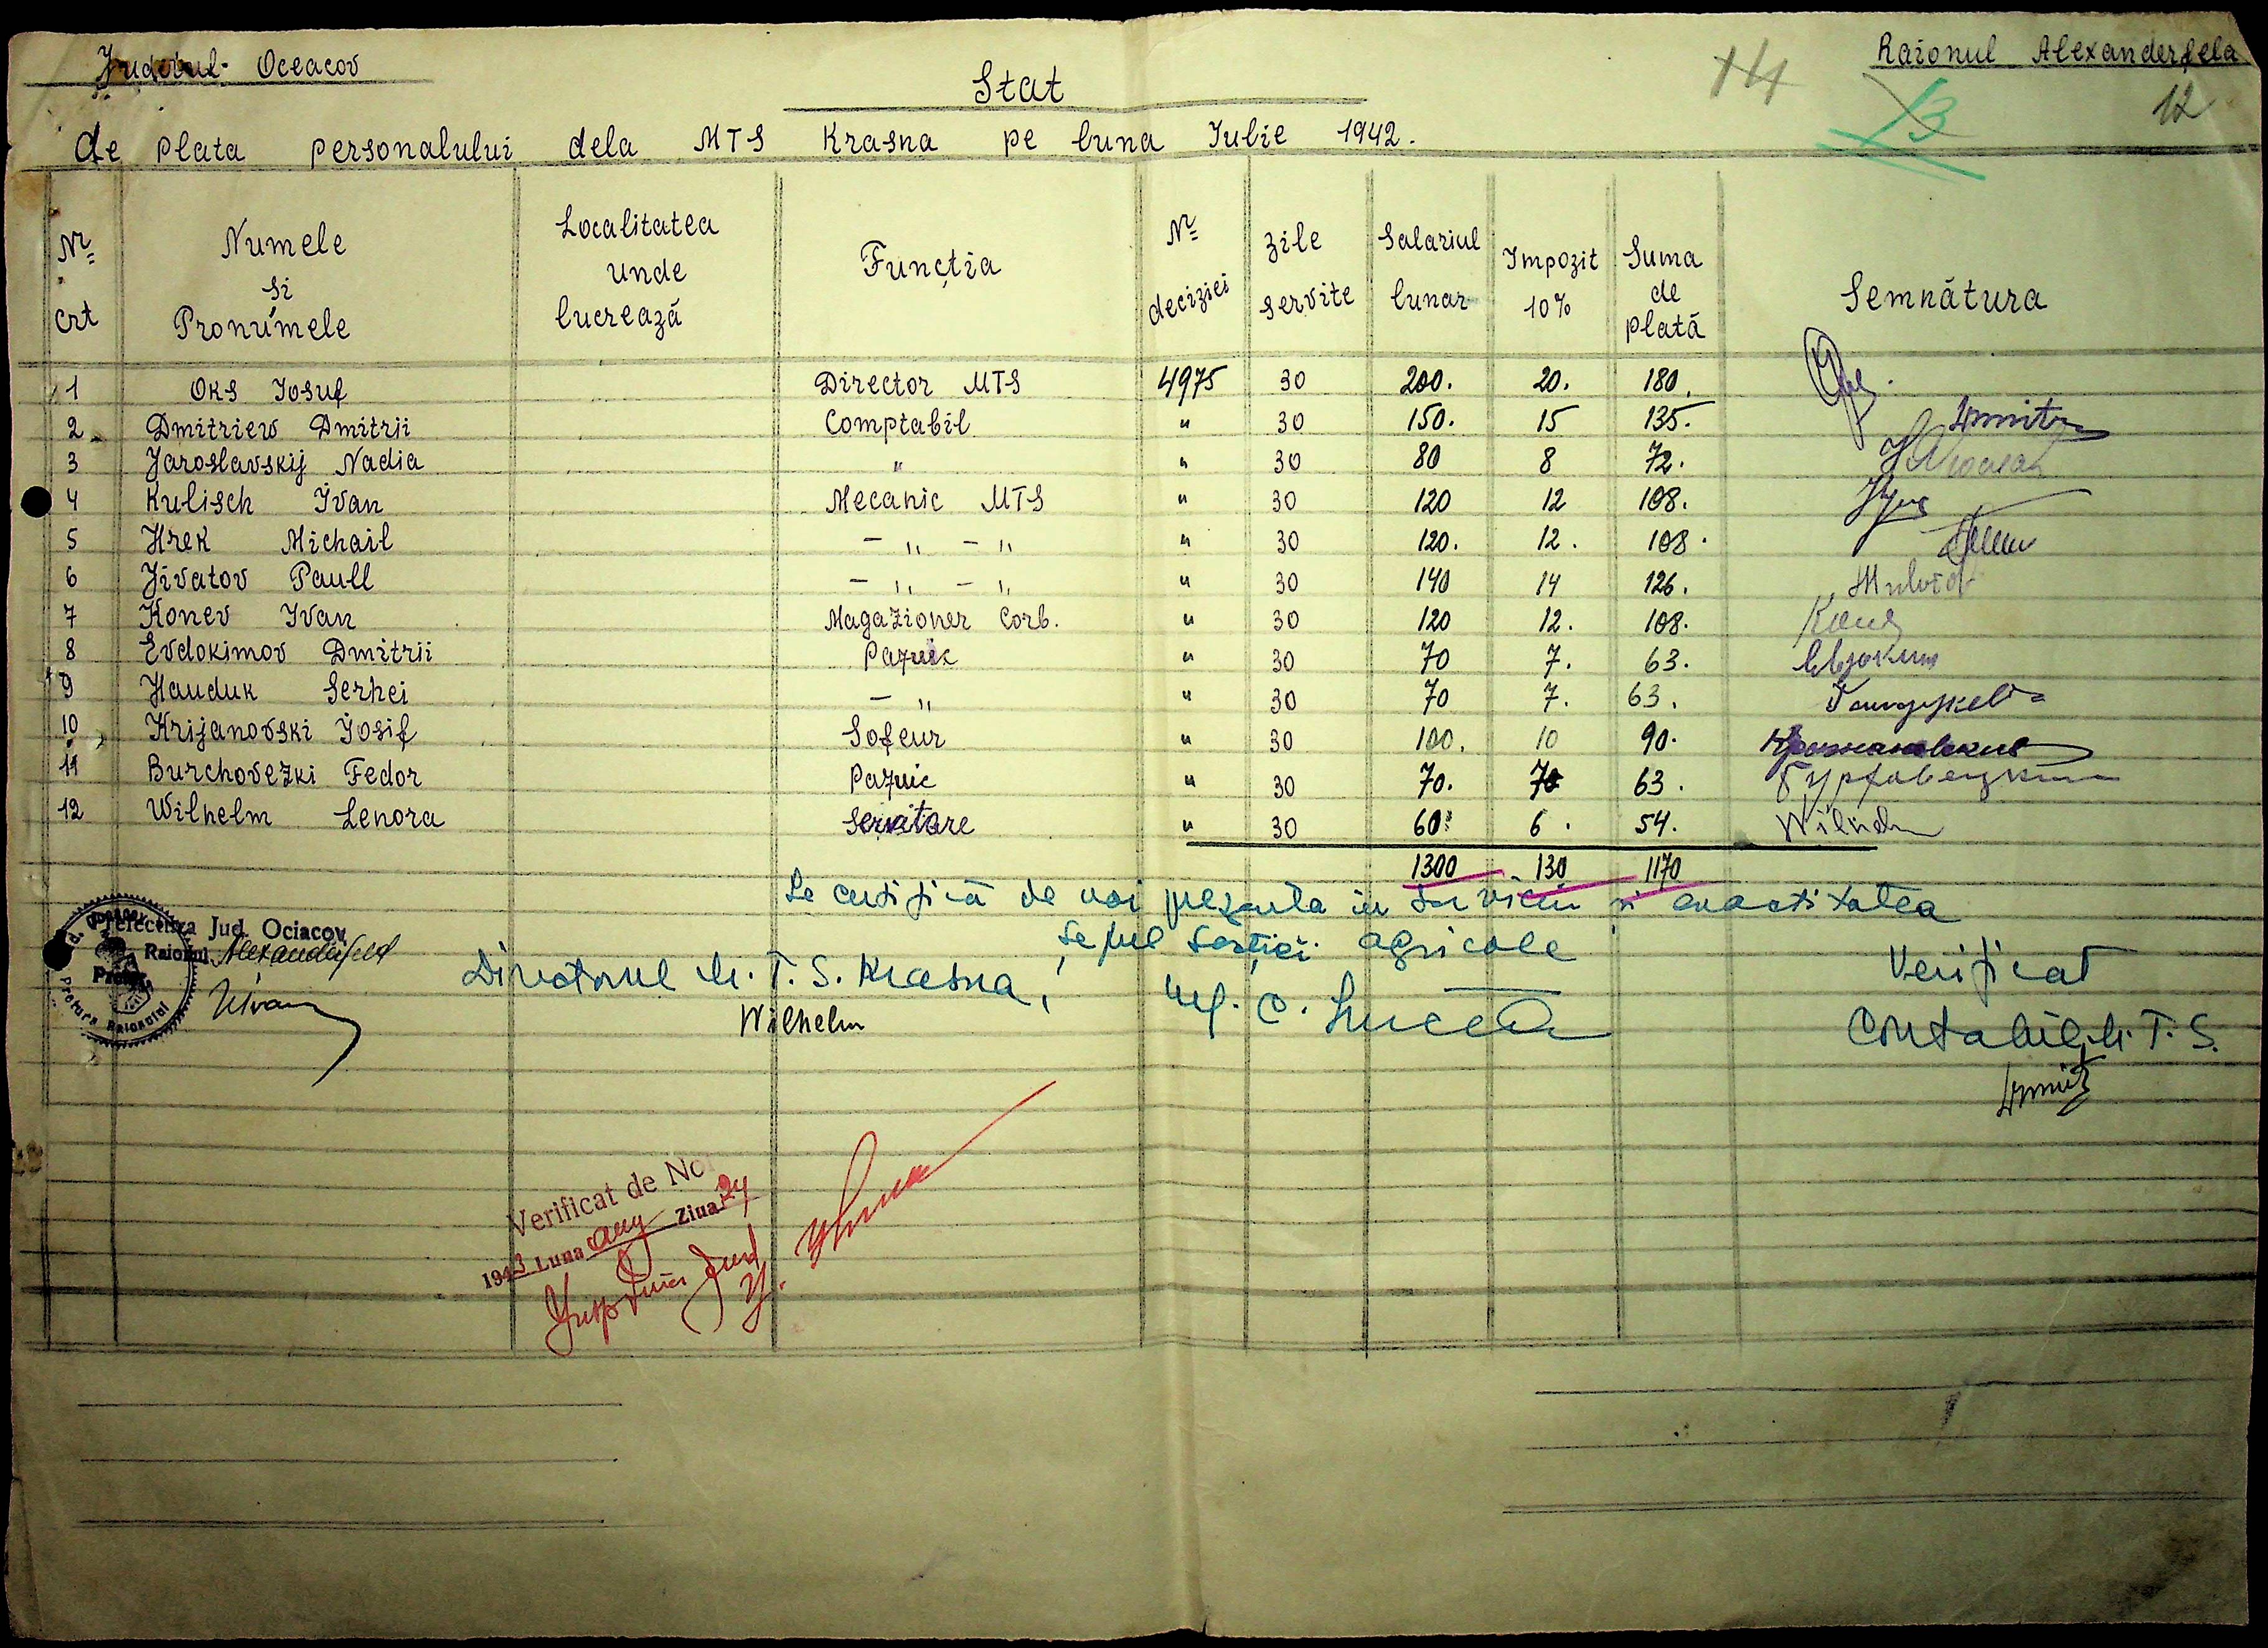 Judetul Oceacov
Raionul Alexanderfeld
Stat
14 13 12
de plata personalului dela MTS Krasna pe luna Iulie 1942.
Nr crt | Numele și Pronumele | Localitatea unde lucrează | Funcția | Nr deciziei | zile servite | Salariul lunar | Impozit 10% | Suma de plată | Semnătura
1 Oks Iosuf Director MTS 4975 30 200. 20. 180.
2 Dmitriew Dmitrii Comptabil " 30 150. 15 135.
3 Jaroslavskij Nadia " " 30 80 8 72.
4 Kulisch Ivan Mecanic MTS " 30 120 12 108.
5 Hrek Michail – " – " " 30 120. 12. 108.
6 Jivatov Paull – " – " " 30 140 14 126.
7 Konev Ivan Magazioner Corb. " 30 120 12. 108. Конев
8 Evdokimov Dmitrii Paznic " 30 70 7. 63. Евдоким
9 Hauduk Serhei – " " 30 70 7. 63.
10 Krijanovski Iosif Sofeur " 30 100. 10 90.
11 Burchovezki Fedor Paznic " 30 70. 7 63.
12 Wilhelm Lenora Servitoare " 30 60. 6. 54. Wilhelm
1300 130 1170
Se certifică de noi prezenta in serviciu si exactitatea
Prefectura Jud. Ociacov
Raionul Alexanderfeld
Pretor
Pretura Raionului
Directorul M. T. S. Krasna,
Wilhelm
Seful Secției agricole
Verificat
Contabil M. T. S.
Verificat de Noi
1943 Luna aug Ziua 24